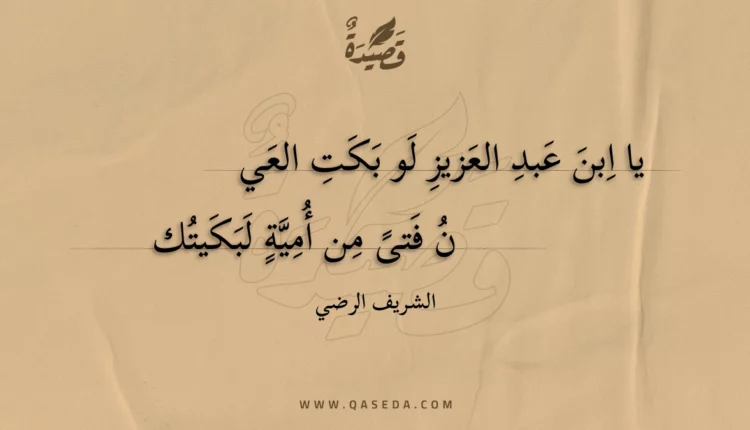 قَصِيْدَةٌ
يا اِبنَ عَبدِ العَزيزِ لَو بَكَتِ العَي
نُ فَتىً مِن أُمِيَّةٍ لَبَكَيتُك
الشريف الرضي
WWW.QASEDA.COM